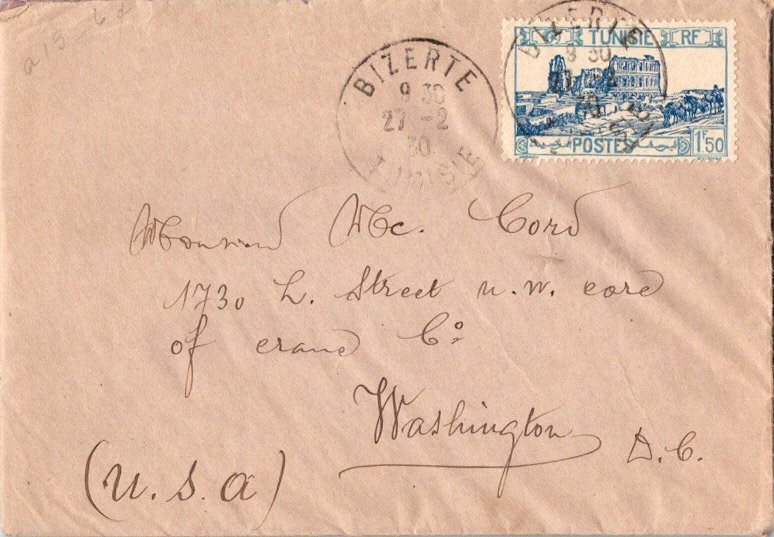 a15-
BIZERTE
9 30
27 -2
30
TUNISIE
BIZERTE
9 30
27 -2
30
TUNISIE RF
POSTES 1F50
Monsieur Mc. Cord
1730 L. Street n.w. care
of crane Co
Washington D.C.
(U.S.A)